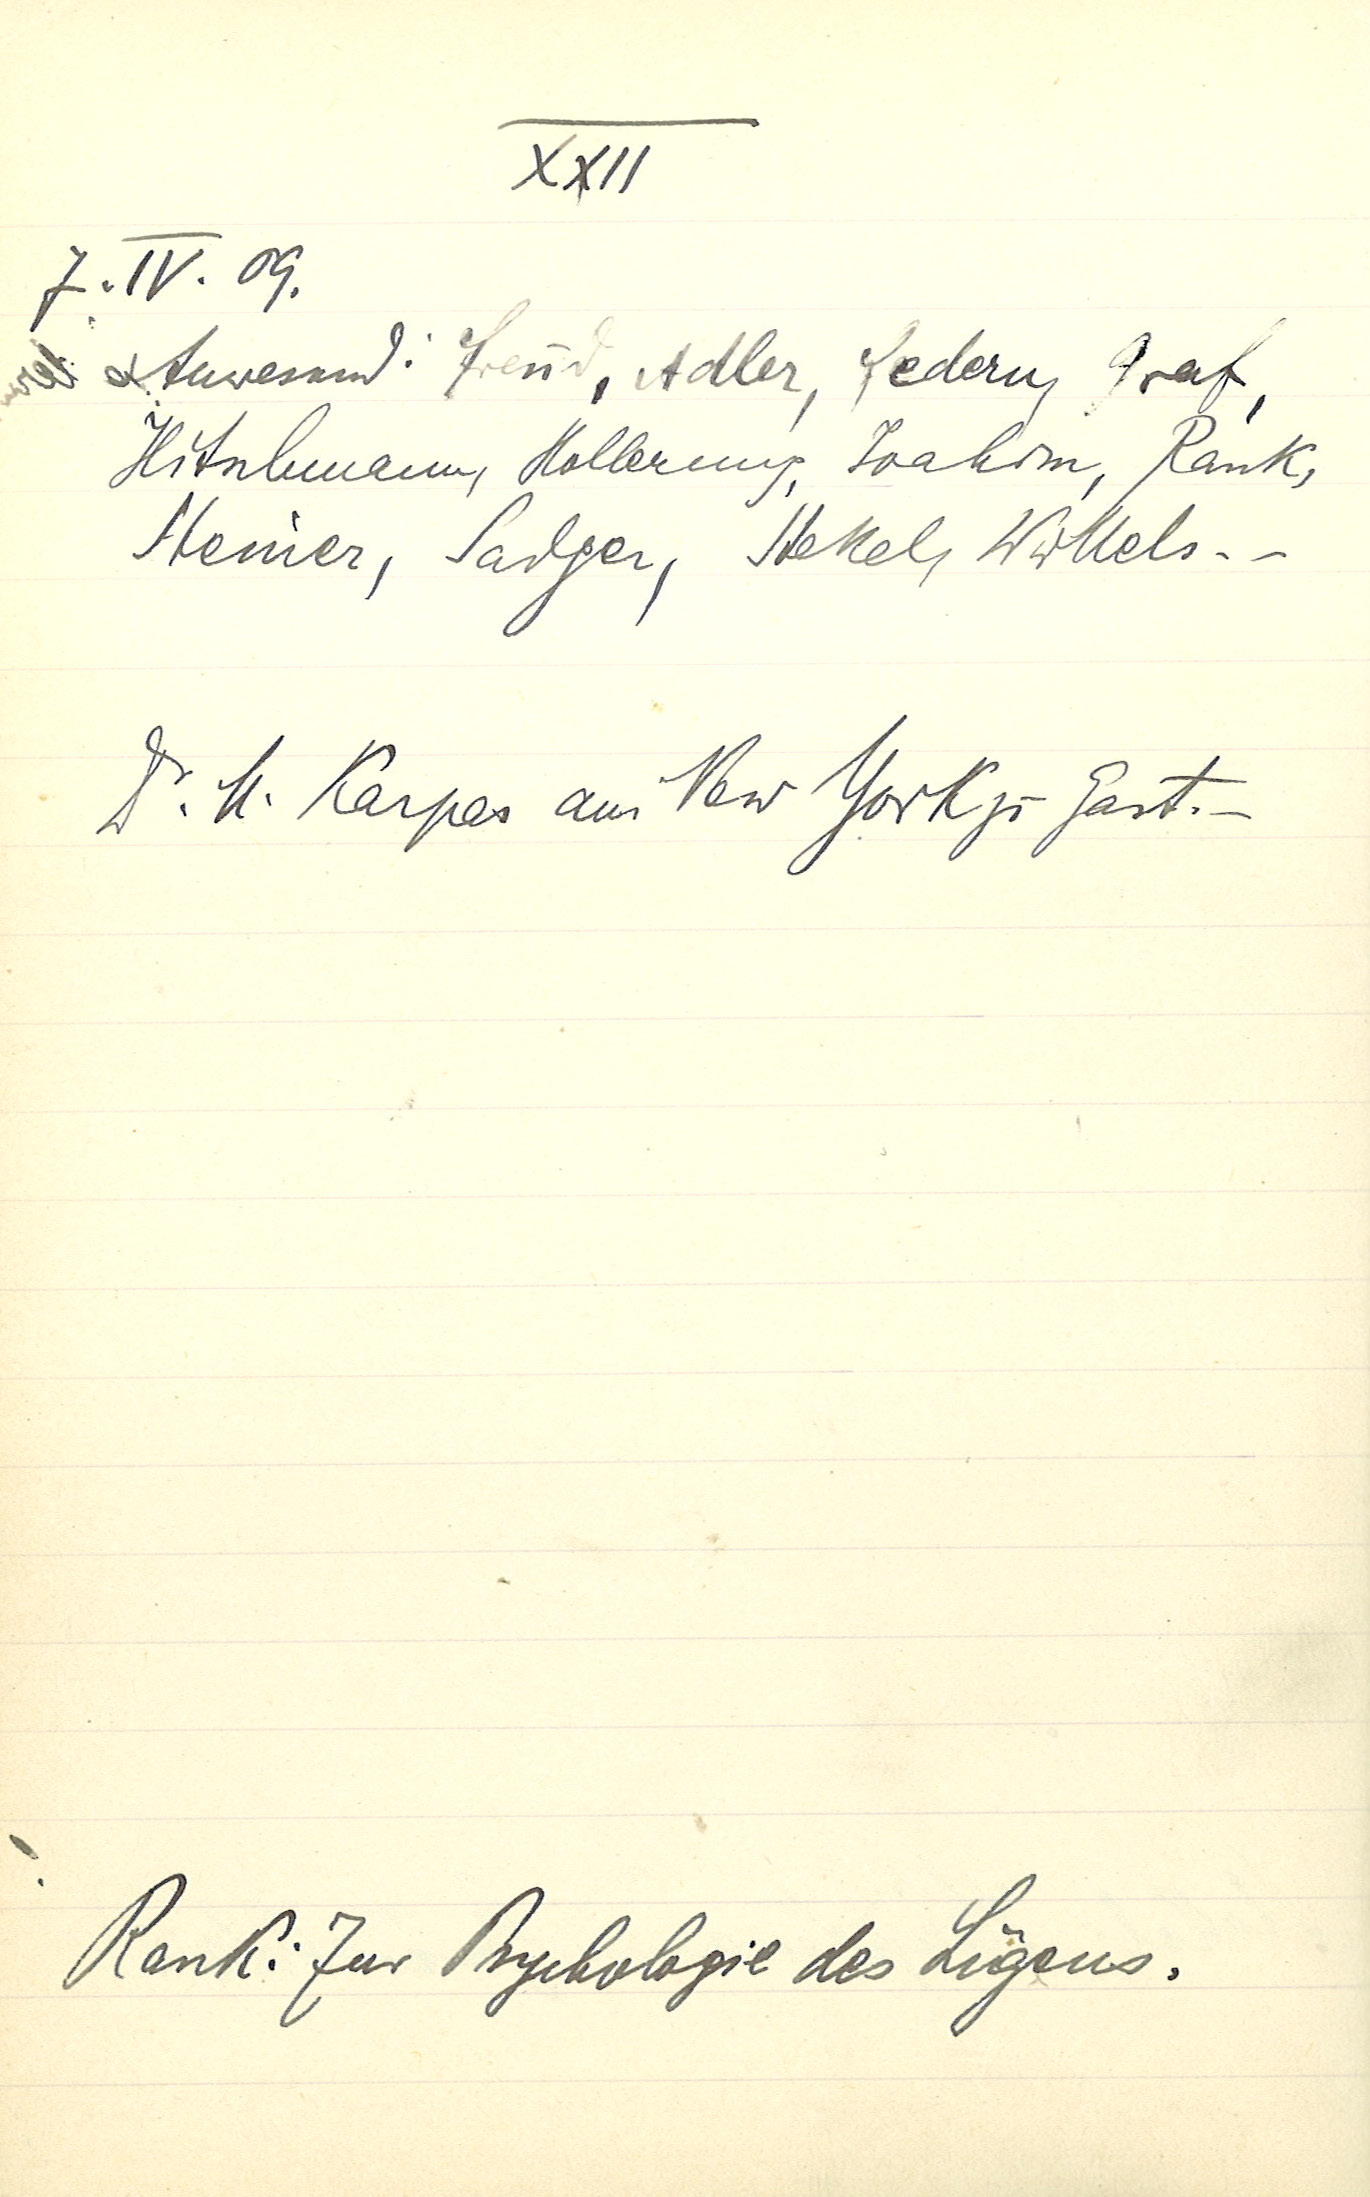 XXII
7. IV. 09.
Anwesend: Freud, Adler, Federn, Graf,
Hitschmann, Hollerung, Joachim, Rank,
Steiner, Sadger, Stekel, Wittels. -
Dr. M. Karpas aus New York zu Gast. -
Rank: Zur Psychologie des Lügens.